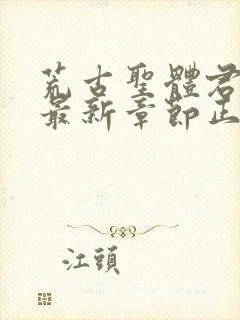 荒古聖體君
最新章節正
江頭